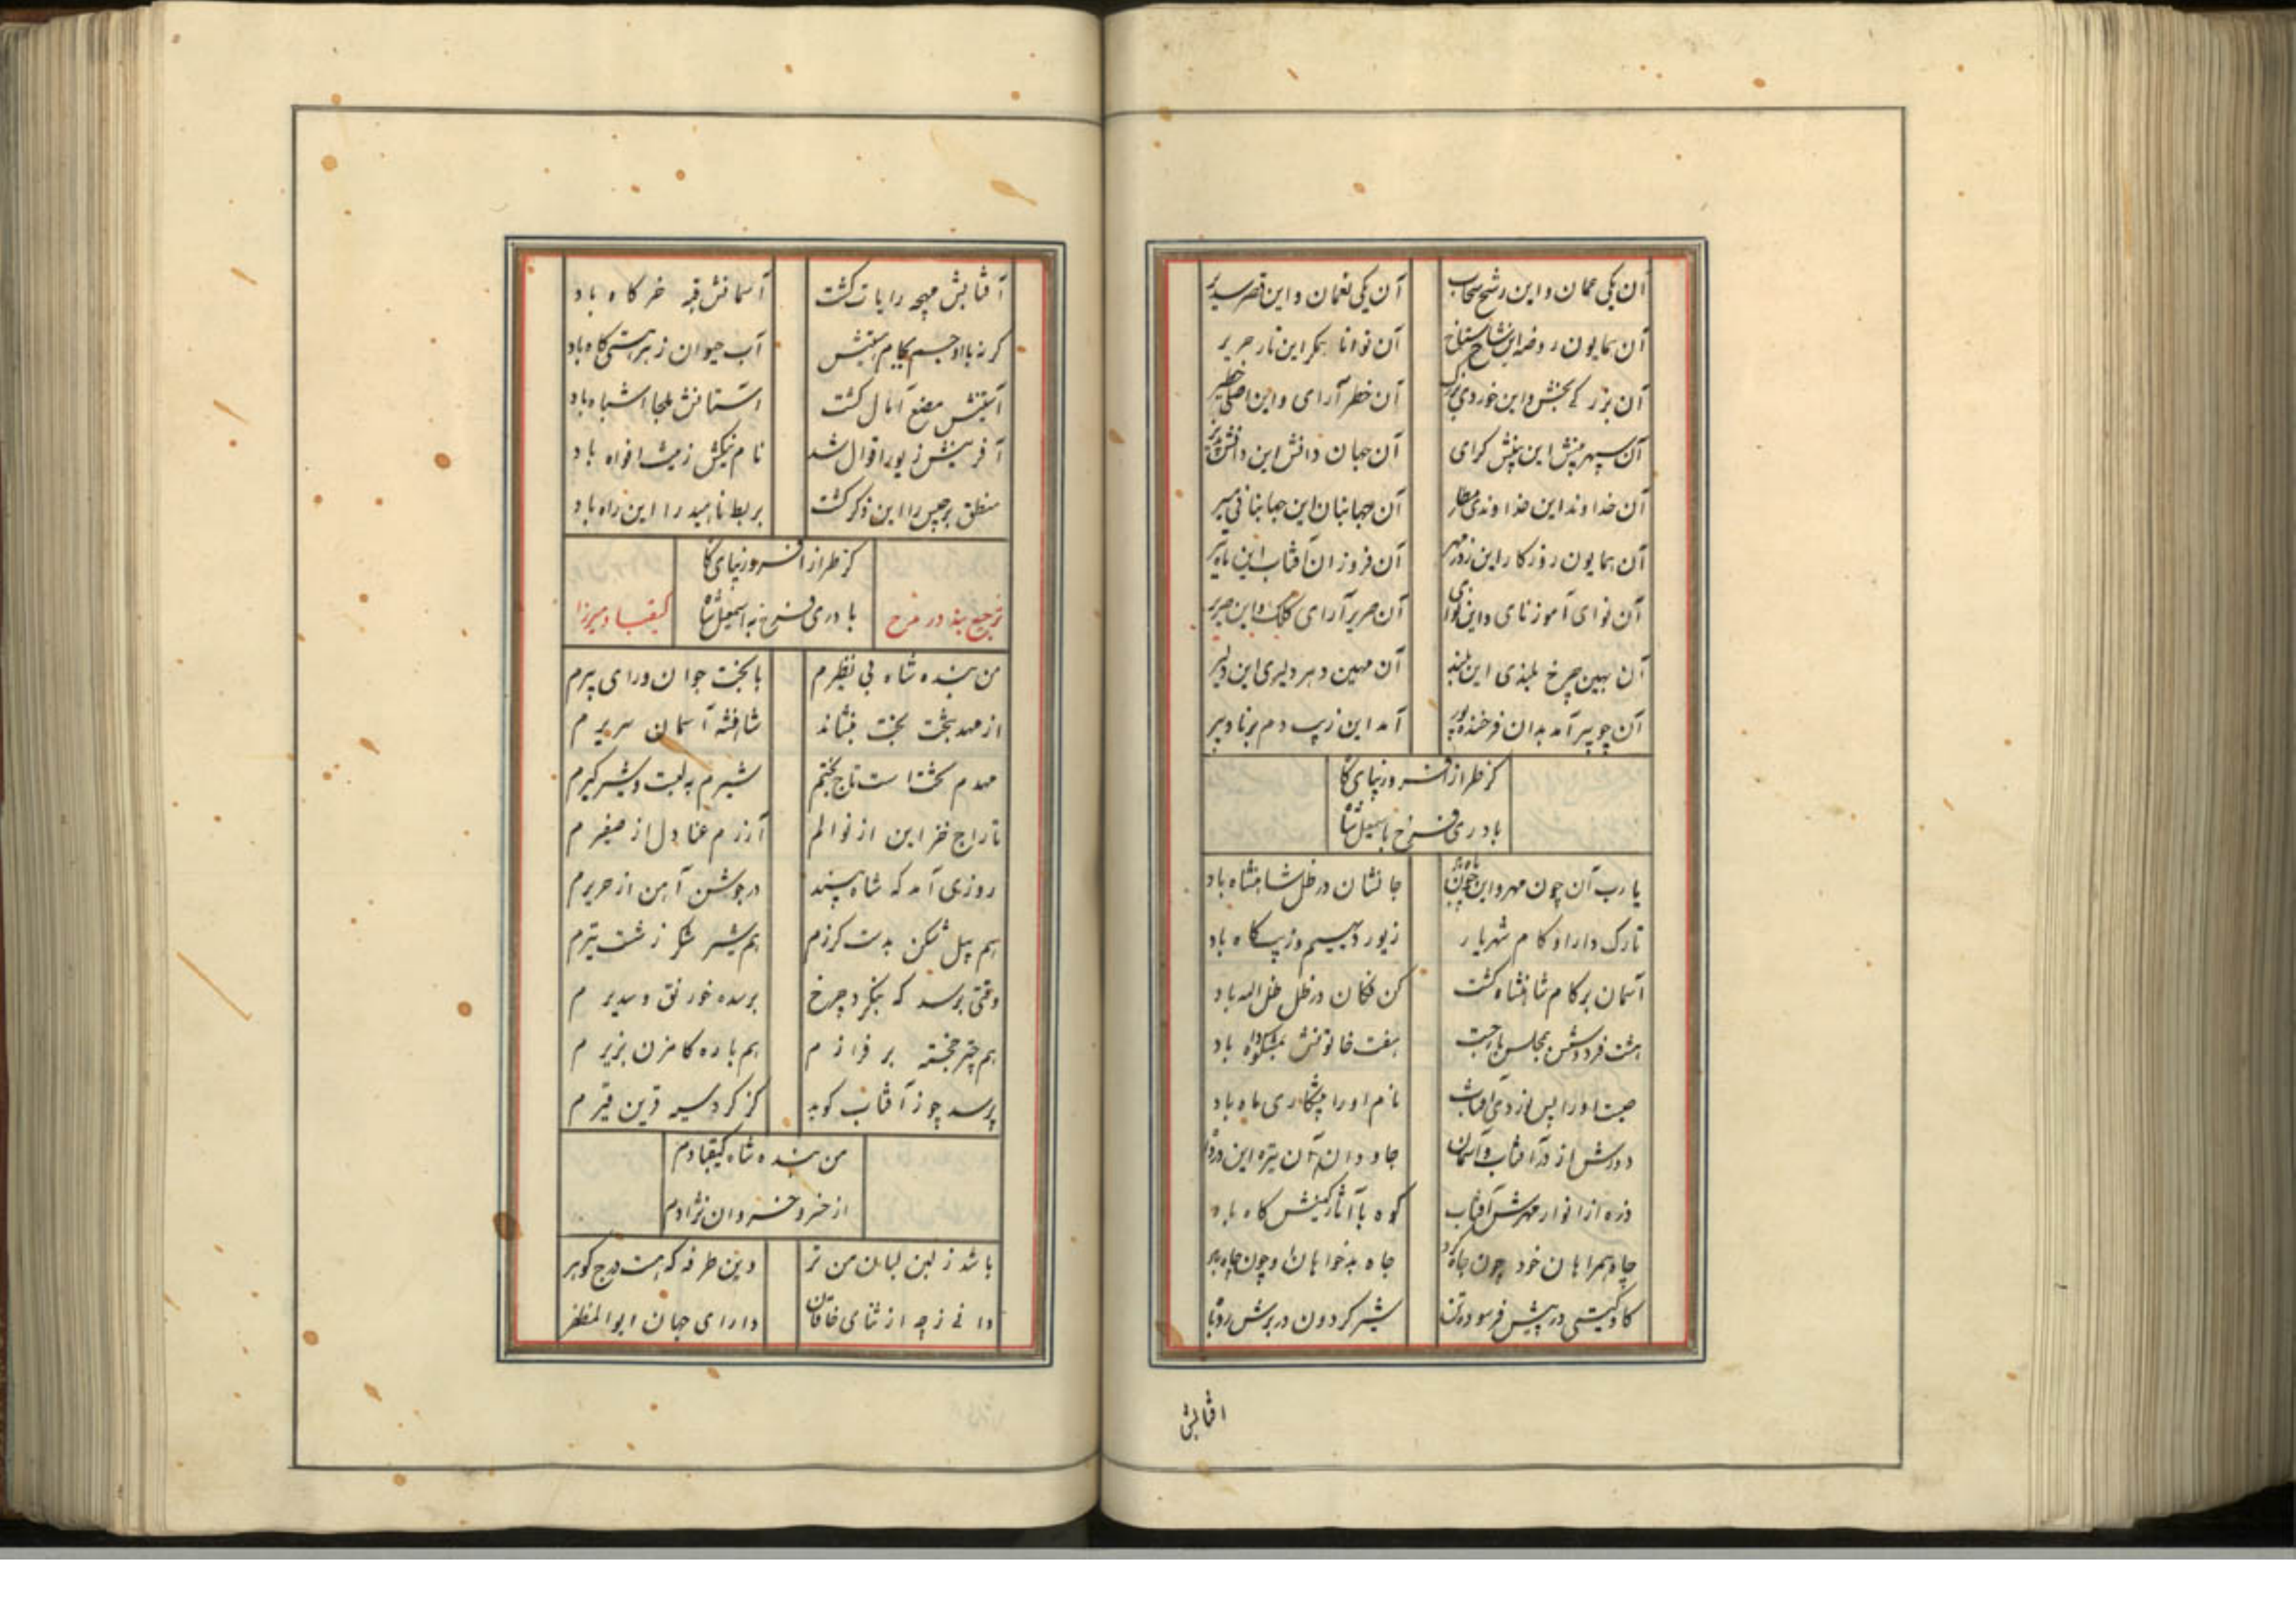 آن یکی عمان و این رشح سحاب
آن یکی نعمان و این قصر سدیر
آن همایون روضه این شاخ
آن توانا بمکر این تار حریر
آن بزرگی بخش و این خوردی بزرگ
آن خطر آرای و این اصلی خطیر
آن سپهر بینش این بینش کرای
آن جهان دانش این دانش
آن خداوند این خداوندی
آن جهانبان این جهانبانی
آن همایون روزکار این روز مهر
آن فروزان آفتاب این ماه
آن نوای آموز نای و این نوای
آن صریر آرای کلک و این صریر
آن بهین چرخ بلندی این بلند
آن مهین دهر دلیری این دلیر
آن چو پیر آمد بدان فرخنده پور
آمد این زیب دم برنا و پیر
کز طراز افسر و زیبای گاه
باد ری فرخ باسمعیل شاه
یا رب آن چون مهر و این چون ماه باد
جانشان در ظل شاهنشاه باد
تارک دارا و کام شهریار
زیور دیهیم و زیب گاه باد
آسمان بر کام شاهنشاه کشت
کن فکان در ظل ظل الله باد
هشت فردوسش بمجلس
هفت خاتونش بمشکوه باد
صیت او را پس
نام او را پیشکاری ماه باد
دورش از دور آفتاب و آسمان
جاودان آن تیره این
ذره از انوار مهرش آفتاب
کوه با آثار کینش کاه باد
جاه همراهان خود چون جاه کرد
جاه بدخواهان او چون چاه باد
کاو کیتی در پیش فرسوده تن
شیر کردون در برش روباه
افتابش
آفتابش مهچه رایات کشت
آسمانش قبه خرگاه باد
کر نه با او جسم بکام
آب حیوان زهر هستی کاه باد
آستینش مضع آمال کشت
استانش ملجا اشباه باد
آفرینش زیور اقوال شد
نام نیکش زینت افواه باد
منطق برجیس را این ذکر کشت
بربط ناهید را این راه باد
کز طراز افسر و زیبای گاه
باد ری فرخ به اسمعیل شاه
ترجیع بند در مدح
کیقباد میرزا
من بنده شاه بی نظیرم
با بخت جوان و رای پیرم
از مهد بتخت بخت بنشاند
شاهنشه آسمان سریرم
مهدم تختا ست تاج بختم
شیرم به لبت و شیر کیرم
تاراج خزاین از نوالم
آزرم عنادل از صفیرم
روزی آمد که شاه بیند
در جوشن آهن از حریرم
هم پیل شکن بدست کرزم
هم شیر شکر ز شست تیرم
وقتی برسد که بنکرد چرخ
بر سده خورنق و سدیرم
هم چتر خجسته بر فرازم
هم باره کامزن بزیرم
پرسد چو ز آفتاب کوید
کز کرد سیه قرین قیرم
من بنده شاه کیقبادم
از خسرو خسروان نژادم
باشد ز لبن لبان من تر
وین طرفه که هست درج کوهر
دانی ز چه از ثنای خاقان
دارای جهان ابوالمظفر